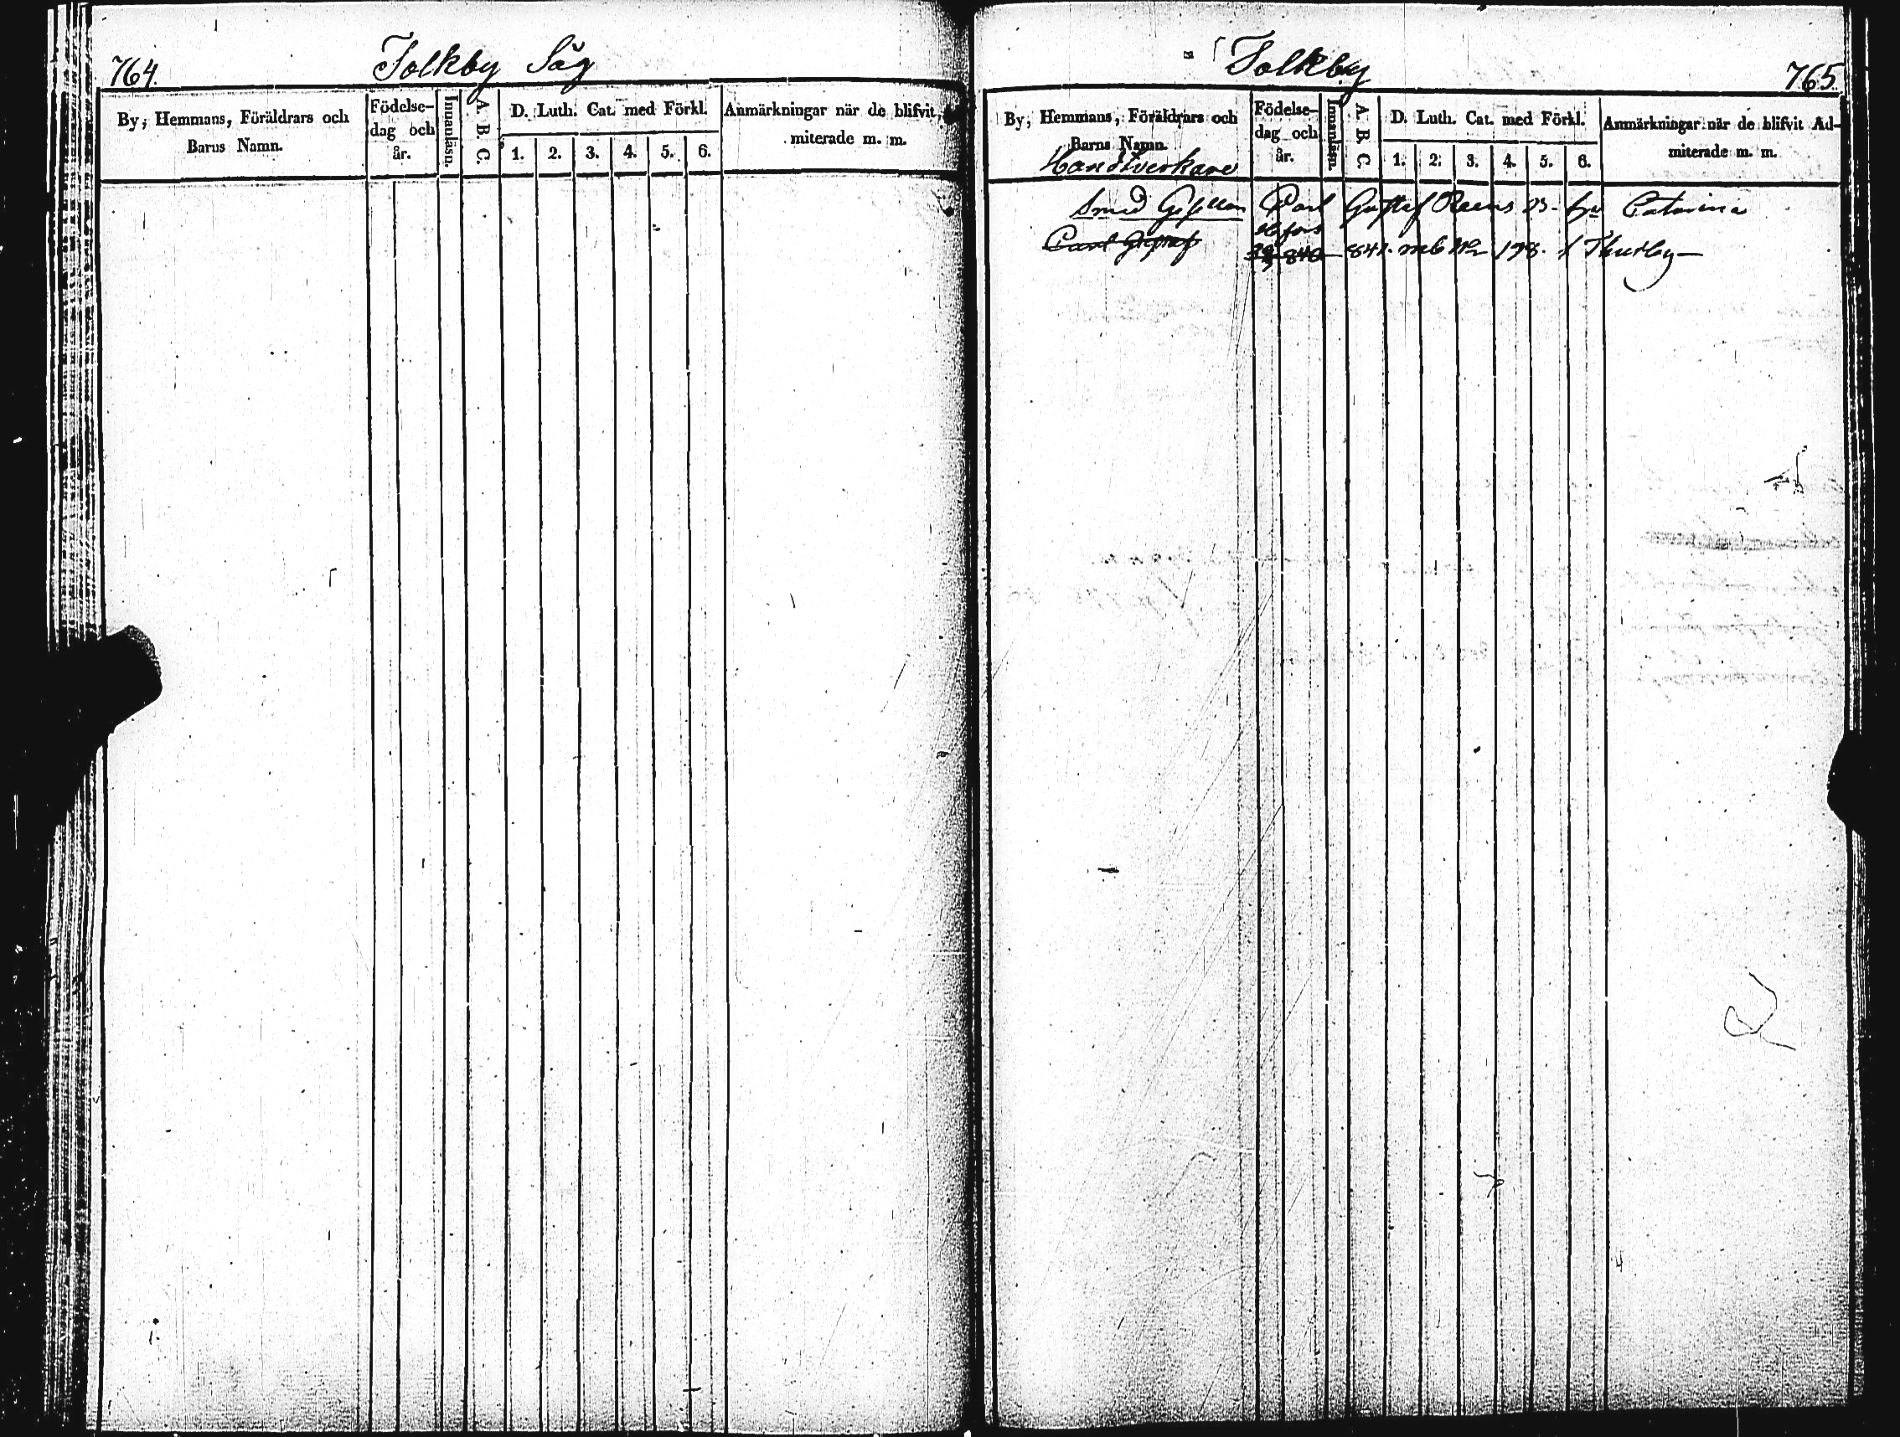 764.
Tolkby Såg
By, Hemmans, Föräldrars och Barns Namn.
Födelse-dag och år.
Innanläsn.
A. B. C.
D. Luth. Cat. med Förkl.
1. 2. 3. 4. 5. 6.
Anmärkningar när de blifvit
miterade m. m.
Tolkby
765.
By, Hemmans, Föräldrars och Barns Namn.
Födelse-dag och år.
Innanläsn.
A. B. C.
D. Luth. Cat. med Förkl.
1. 2. 3. 4. 5. 6.
Anmärkningar när de blifvit Ad-
miterade m. m.
Handtverkare
Smed Gesellen Carl Gustaf Catarina
Carl Gustaf 840 841.